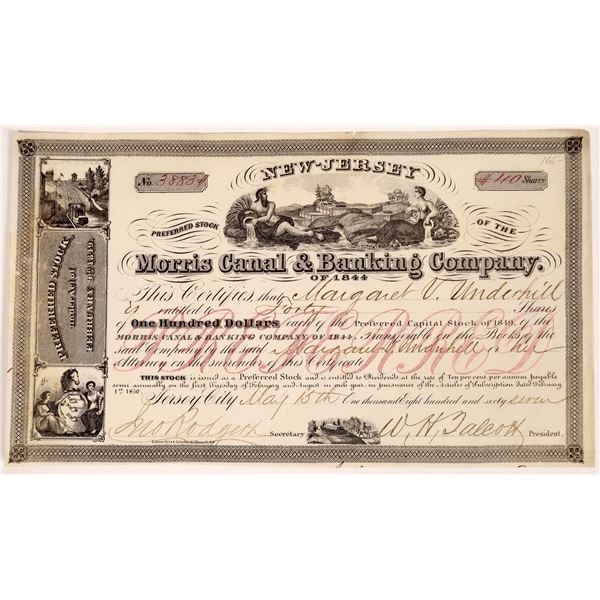 166-
NEW-JERSEY
No. 38834
#40 Shares
PREFERRED STOCK
OF THE
Morris Canal & Banking Company.
OF 1844
PREFERRED STOCK,
under Act of
FEBRUARY 9th 1849.
This Certifies, that Margaret U. Underhill
is entitled to Forty Shares
of One Hundred Dollars each of the Preferred Capital Stock of 1849, of the
MORRIS CANAL & BANKING COMPANY OF 1844. Transferable on the Books of the
said Company by the said Margaret U. Underhill or her
Attorney on the surrender of this Certificate
THIS STOCK is issued as a Preferred Stock and is entitled to Dividends at the rate of Ten per cent. per annum, payable
semi-annually on the first Tuesday of February and August in each year, in pursuance of the Articles of Subscription Dated February
1st 1850.
Jersey City May 15th One thousand Eight hundred and sixty seven
Jno Rodgers Secretary W. H. Talcott President.